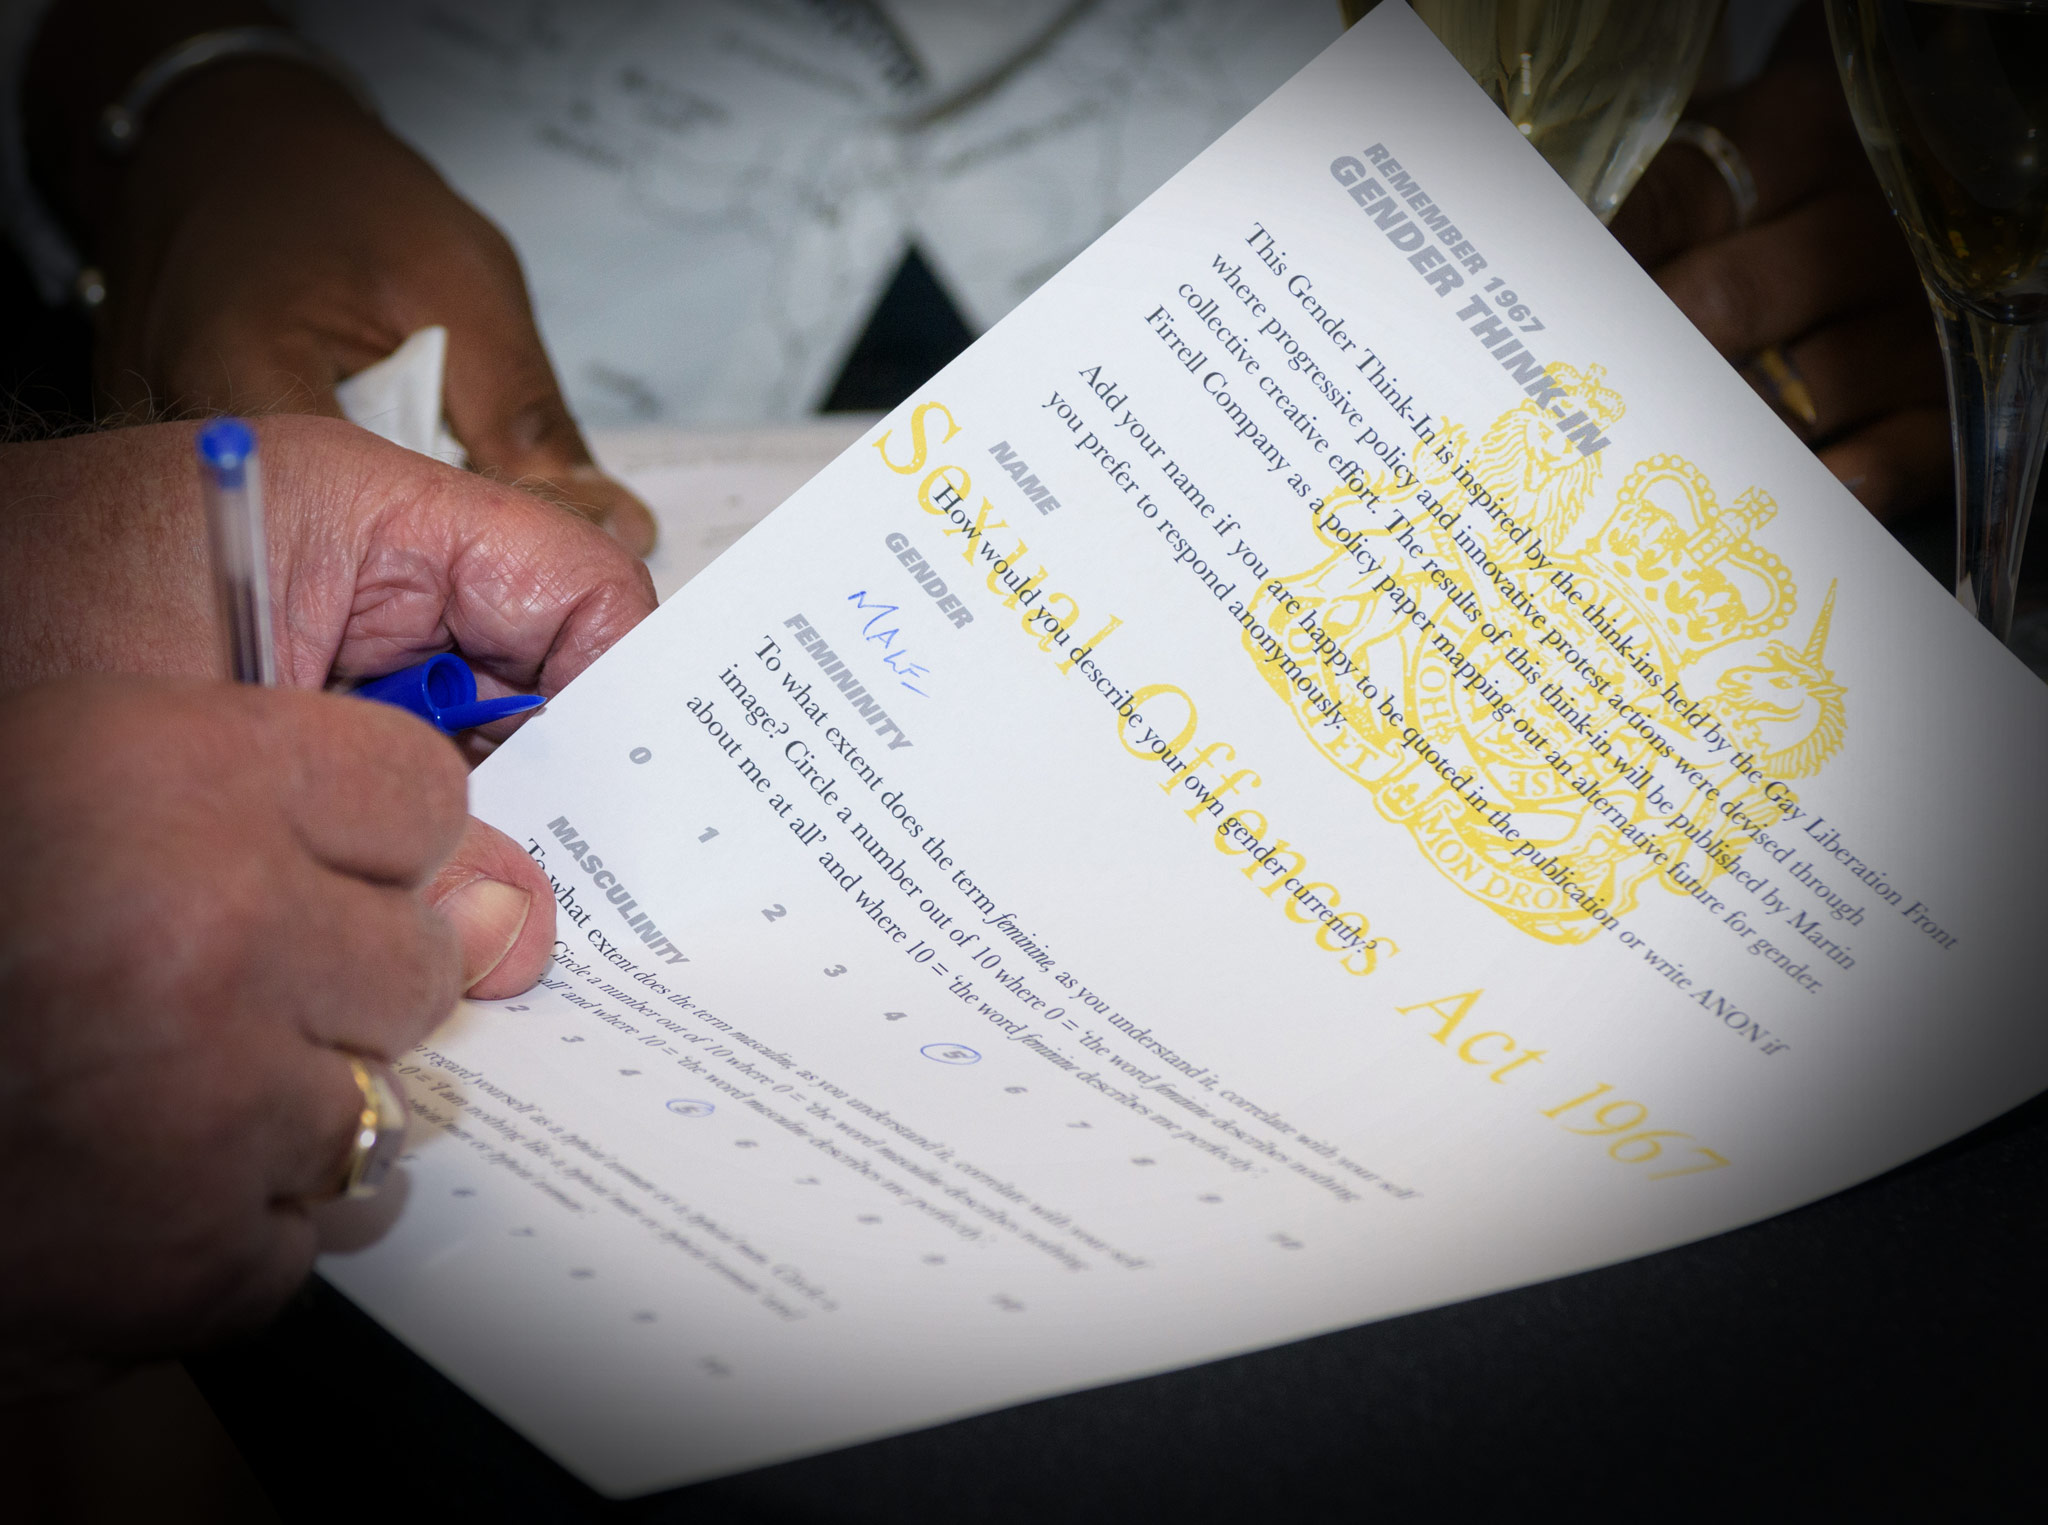 REMEMBER 1967
GENDER THINK-IN
This Gender Think-In is inspired by the think-ins held by the Gay Liberation Front
where progressive policy and innovative protest actions were devised through
collective creative effort. The results of this think-in will be published by Martin
Firrell Company as a policy paper mapping out an alternative future for gender.
Add your name if you are happy to be quoted in the publication or write ANON if
you prefer to respond anonymously.
Sexual Offences Act 1967
MON DRO
NAME
How would you describe your own gender currently?
GENDER
MALE
FEMININITY
To what extent does the term feminine, as you understand it, correlate with your self
image? Circle a number out of 10 where 0 = 'the word feminine describes nothing
about me at all' and where 10 = 'the word feminine describes me perfectly.'
0 1 2 3 4 5 6 7 8 9 10
MASCULINITY
To what extent does the term masculine, as you understand it, correlate with your self
Circle a number out of 10 where 0 = 'the word masculine describes nothing
all' and where 10 = 'the word masculine describes me perfectly.'
2 3 4 5 6 7 8 9 10
regard yourself as a typical woman or a typical man. Circle a
0 = 'I am nothing like a typical man or typical woman' and
typical man or typical woman.'
6 7 8 9 10